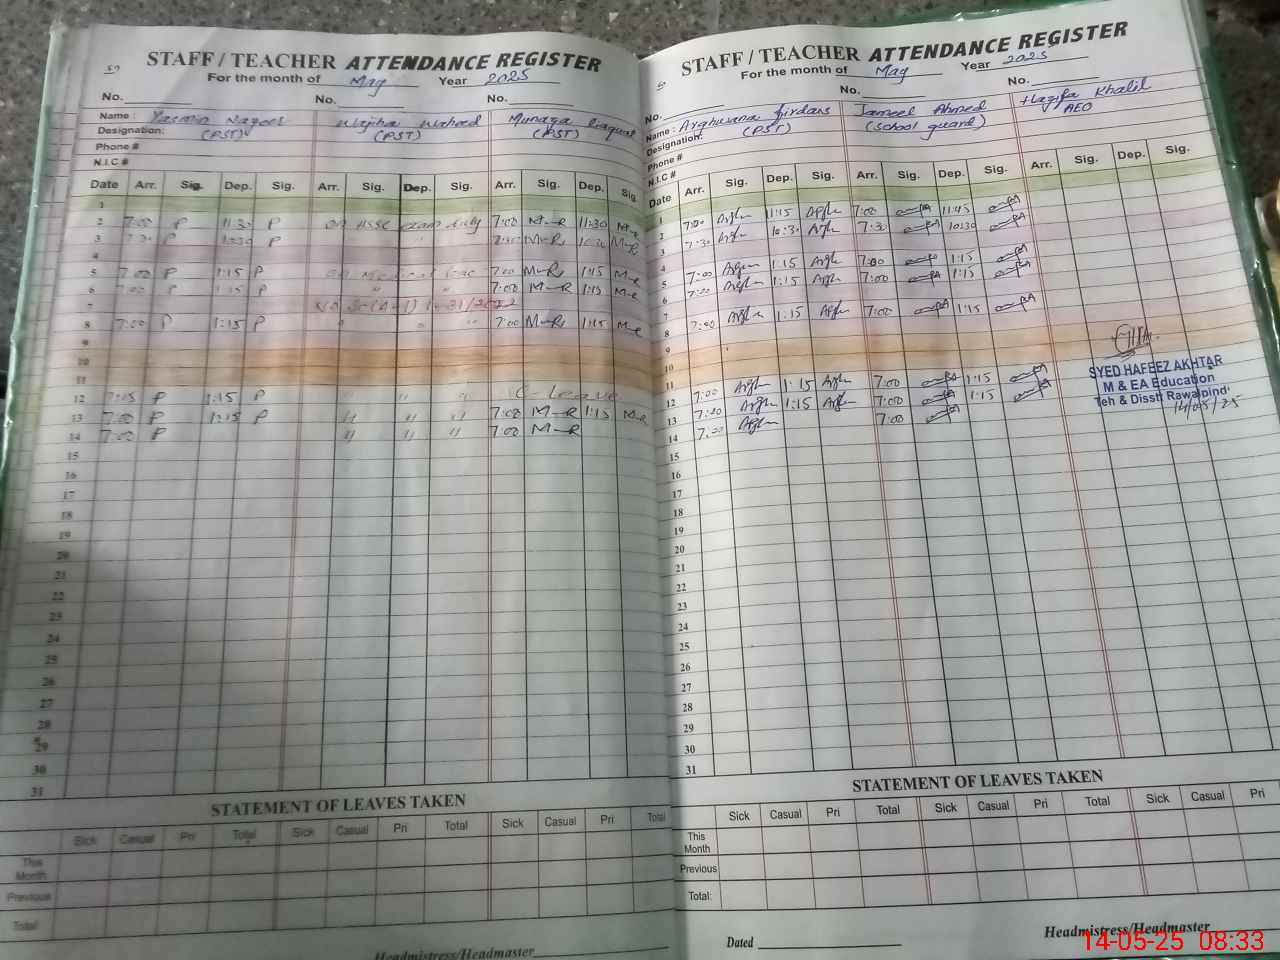 57
STAFF / TEACHER ATTENDANCE REGISTER
For the month of May Year 2025
No. No. No.
Name :
Designation: (PST) (PST) (PST)
Phone #
N.I.C #
Date Arr. Sig. Dep. Sig. Arr. Sig. Dep. Sig. Arr. Sig. Dep. Sig.
1
2 7:00 P 11:30 P on HSSC exam duty 7:00 M-R 11:30 M-R
3 7:30 P 10:30 P 7:30 M-R 10:30 M-R
4
5 7:00 P 1:15 P on Medical 7:00 M-R 1:15 M-R
6 7:00 P 1:15 P " " 7:00 M-R 1:15 M-R
7
8 7:00 P 1:15 P " " " 7:00 M-R 1:15 M-R
9
10
11
12 7:15 P 1:15 P " " " C-Leave
13 7:00 P 1:15 P " " " 7:00 M-R 1:15 M-R
14 7:00 P " " " 7:00 M-R
15
16
17
18
19
20
21
22
23
24
25
26
27
28
29
30
31
STATEMENT OF LEAVES TAKEN
Sick Casual Pri Total Sick Casual Pri Total Sick Casual Pri Total
This Month
Previous
Total:
Headmistress/Headmaster
STAFF / TEACHER ATTENDANCE REGISTER
For the month of May Year 2025
No. No. No.
Name : Arghuwana firdaus Jameel Ahmed Huzifa Khalil
Designation: (PST) (school guard) AEO
Phone #
N.I.C #
Date Arr. Sig. Dep. Sig. Arr. Sig. Dep. Sig. Arr. Sig. Dep. Sig.
1
2 7:00 Argh 11:15 Argh 7:00 11:45
3 7:30 Argh 10:30 Argh 7:30 10:30
4
5 7:00 Argh 1:15 Argh 7:00 1:15
6 7:00 Argh 1:15 Argh 7:00 1:15
7
8 7:00 Argh 1:15 Argh 7:00 1:15
9
10
11
12 7:00 Argh 1:15 Argh 7:00 1:15
13 7:00 Argh 1:15 Argh 7:00 1:15
14 7:00 Argh 7:00
15
16
17
18
19
20
21
22
23
24
25
26
27
28
29
30
31
SYED HAFEEZ AKHTAR
M & EA Education
Teh & Disst Rawalpindi
14/05/25
STATEMENT OF LEAVES TAKEN
Sick Casual Pri Total Sick Casual Pri Total Sick Casual Pri
This Month
Previous
Total:
Dated Headmistress/Headmaster
14-05-25 08:33